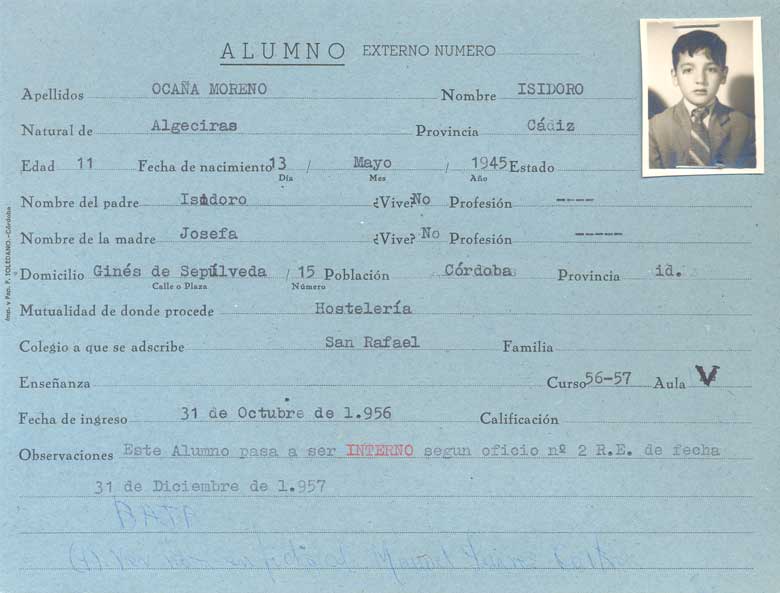 ALUMNO EXTERNO NUMERO
Apellidos OCAÑA MORENO Nombre ISIDORO
Natural de Algeciras Provincia Cádiz
Edad 11 Fecha de nacimiento 13 / Mayo / 1945 Estado
Día Mes Año
Nombre del padre Isidoro ¿Vive? No Profesión ----
Nombre de la madre Josefa ¿Vive? No Profesión -----
Domicilio Ginés de Sepúlveda / 15 Población Córdoba Provincia id.
Calle o Plaza Número
Mutualidad de donde procede Hostelería
Colegio a que se adscribe San Rafael Familia
Enseñanza Curso 56-57 Aula V
Fecha de ingreso 31 de Octubre de 1.956 Calificación
Observaciones Este Alumno pasa a ser INTERNO segun oficio nº 2 R.E. de fecha
31 de Diciembre de 1.957
BAJA
Imp. y Pap. F. TOLEDANO.-Córdoba